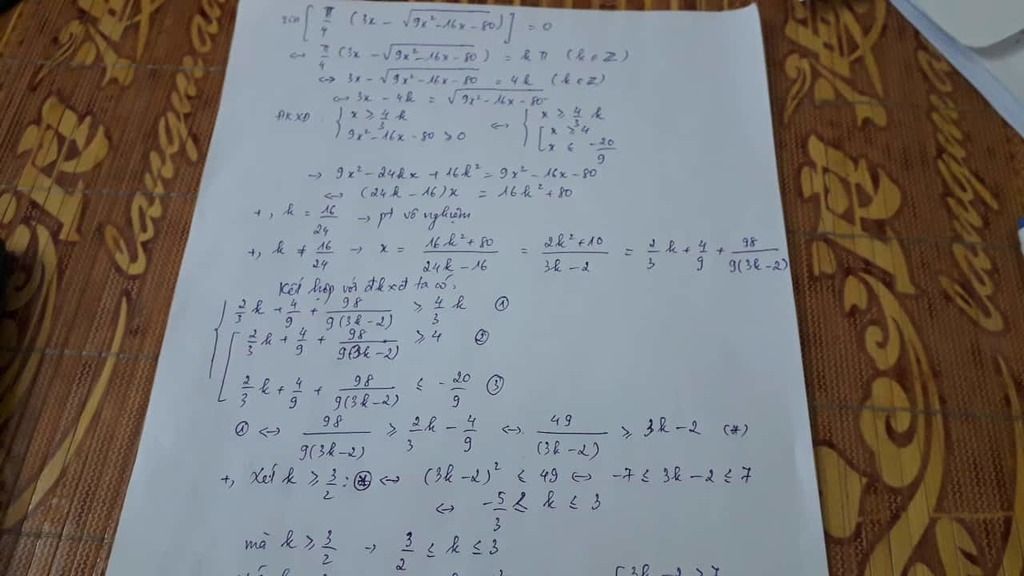 sin[π/4 (3x - √(9x²-16x-80))] = 0
⇔ π/4 (3x - √(9x²-16x-80)) = kπ (k∈Z)
⇔ 3x - √(9x²-16x-80) = 4k (k∈Z)
⇔ 3x - 4k = √(9x²-16x-80)
ĐKXĐ: { x ≥ 4/3 k ; 9x²-16x-80 ≥ 0 ⇔ { x ≥ 4/3 k ; [ x ≥ 4 ; x ≤ -20/9
→ 9x² - 24kx + 16k² = 9x² - 16x - 80
⇔ (24k - 16)x = 16k² + 80
+, k = 16/24 → pt vô nghiệm
+, k ≠ 16/24 → x = (16k²+80)/(24k-16) = (2k²+10)/(3k-2) = 2/3 k + 4/9 + 98/(9(3k-2))
Kết hợp với đkxđ ta có:
2/3 k + 4/9 + 98/(9(3k-2)) ≥ 4/3 k ①
2/3 k + 4/9 + 98/(9(3k-2)) ≥ 4 ②
2/3 k + 4/9 + 98/(9(3k-2)) ≤ -20/9 ③
① ⇔ 98/(9(3k-2)) ≥ 2/3 k - 4/9 ⇔ 49/(3k-2) ≥ 3k-2 (*)
+, Xét k ≥ 3/2: (*) ⇔ (3k-2)² ≤ 49 ⇔ -7 ≤ 3k-2 ≤ 7
⇔ -5/3 ≤ k ≤ 3
mà k ≥ 3/2 → 3/2 ≤ k ≤ 3
[3k-2 ≥ 7